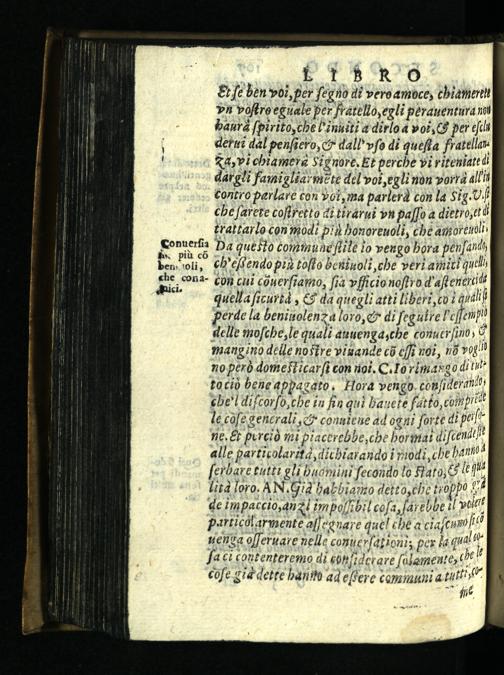 LIBRO
Et se ben voi, per segno di vero amoce, chiamerete
vn vostro eguale per fratello, egli perauentura non
haurà spirito, che l'inuiti a dirlo a voi, & per esclu
derui dal pensiero, & dall'vso di questa fratellan-
za, vi chiamerà Signore. Et perche vi riteniate di
dargli famigliarmẽte del voi, egli non vorrà all'in
contro parlare con voi, ma parlerà con la Sig. V. si
che sarete costretto di tirarui vn passo a dietro, et di
trattarlo con modi più honoreuoli, che amoreuoli.
Da questo commune stile io vengo hora pensando,
ch'essendo più tosto beniuoli, che veri amici quelli,
con cui cõuersiamo, sia vfficio nostro d'astenerci da
quella sicurtà, & da quegli atti liberi, co i quali si
perde la beniuolenza loro, & di seguire l'essempio
delle mosche, le quali auuenga, che conuersino, &
mangino delle nostre viuande cõ essi noi, nõ voglio
no però domesticarsi con noi. C. Io rimango di tut-
to ciò bene appagato. Hora vengo considerando,
che'l discorso, che in fin qui hauete fatto, comprẽde
le cose generali, & conuiene ad ogni sorte di perso-
ne. Et perciò mi piacerebbe, che hormai discendeste
alle particolarità, dichiarando i modi, che hanno a
serbare tutti gli huomini secondo lo stato, & le qua
lità loro. AN. Già habbiamo detto, che troppo grã
de impaccio, anzi impossibil cosa, sarebbe il volere
particolarmente assegnare quel che a ciascuno si cõ
uenga osseruare nelle conuersationi; per la qual co-
sa ci contenteremo di considerare solamente, che le
cose già dette hanno ad essere communi a tutti, co-
me
Conuersia
più cõ
beniuoli,
che con a-
mici.